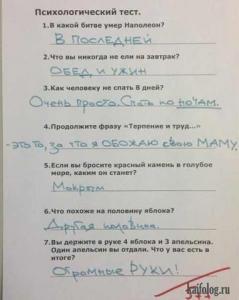 Психологический тест.
1.В какой битве умер Наполеон?
В ПОСЛЕДНЕЙ
2.Что вы никогда не ели на завтрак?
ОБЕД И УЖИН
3.Как человеку не спать 8 дней?
Очень просто. Спать по ночам.
4.Продолжите фразу «Терпение и труд...»
-это то, за что я ОБОЖАЮ свою МАМУ.
5.Если вы бросите красный камень в голубое
море, каким он станет?
Мокрым
6.Что похоже на половину яблока?
Другая половина.
7.Вы держите в руке 4 яблока и 3 апельсина.
Один апельсин вы отдали. Что у вас есть в
итоге?
Огромные РУКИ!
kaifolog.ru